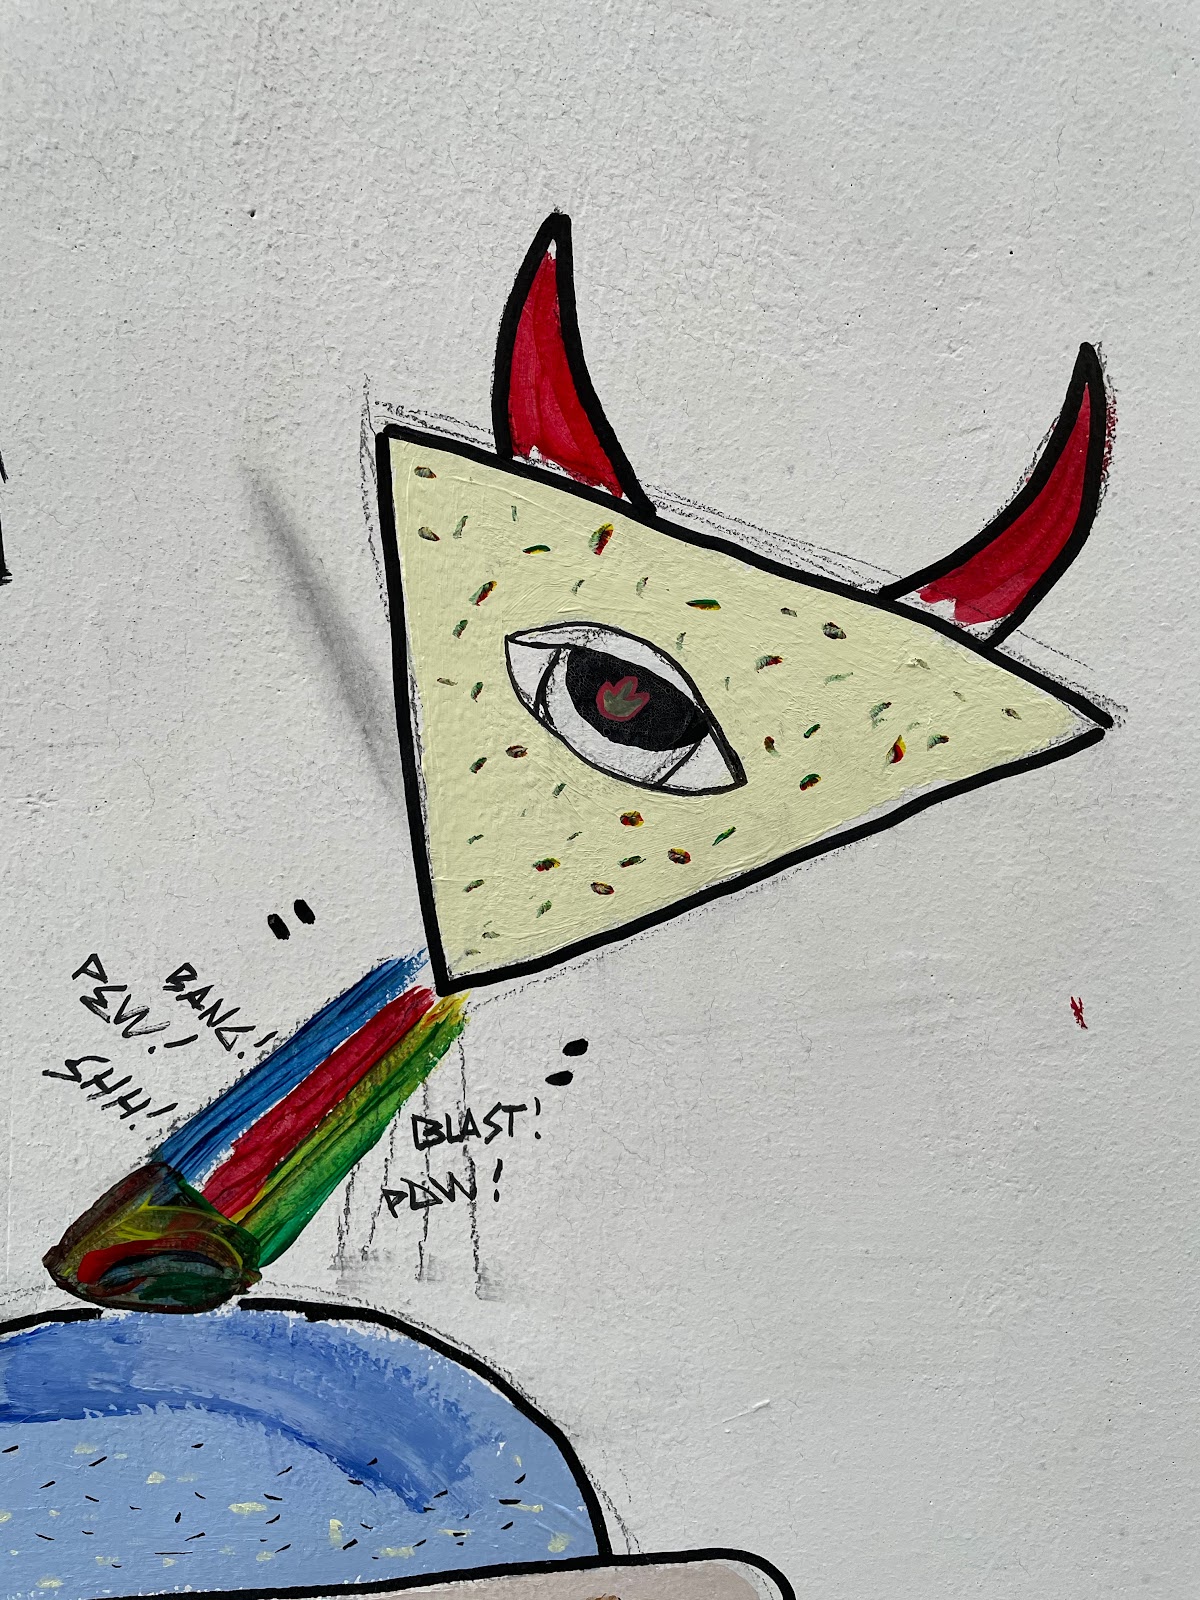 BANG!
PEW!
SHH!
BLAST!
POW!